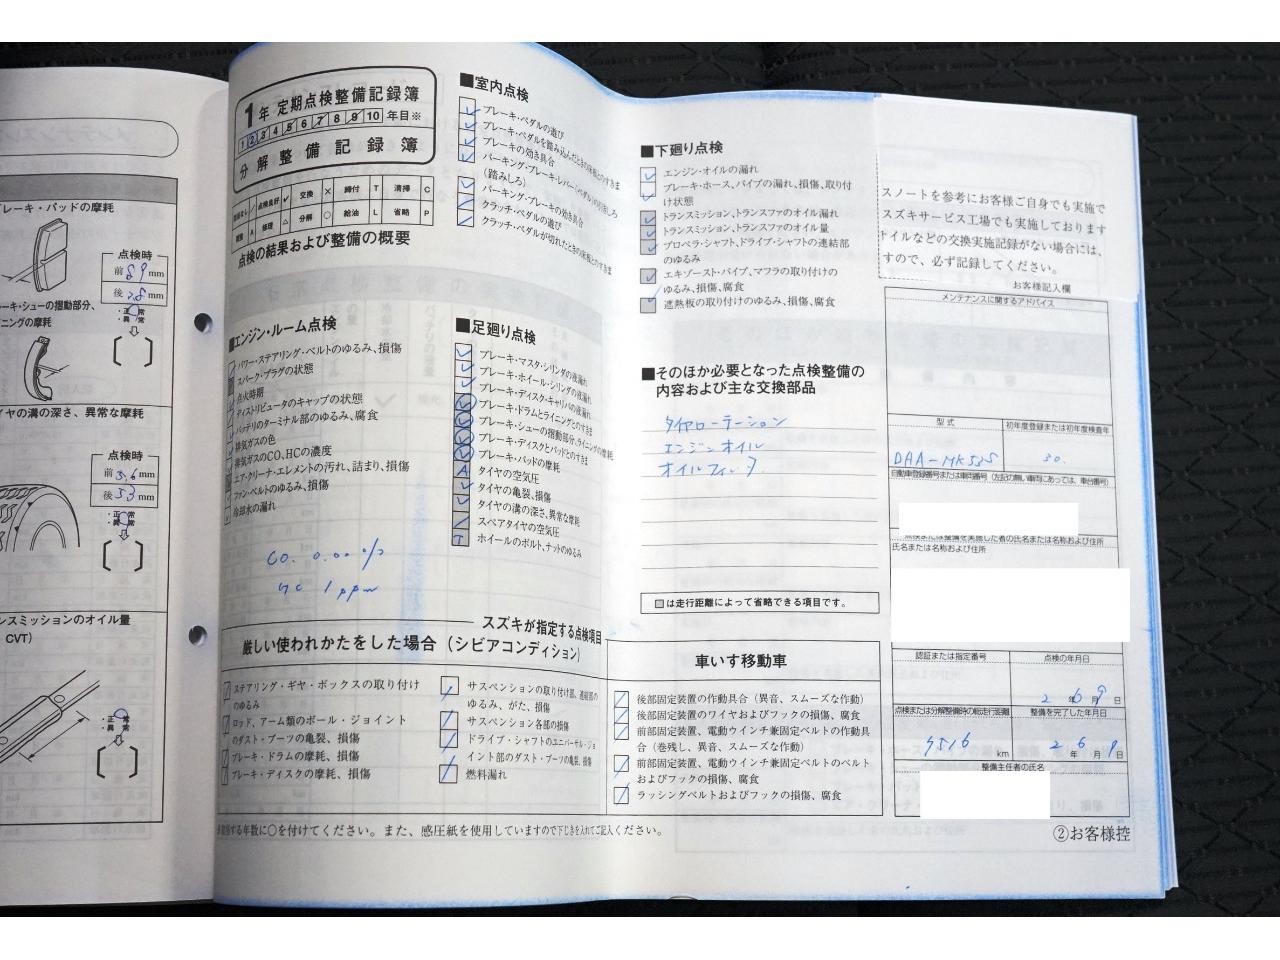 レーキ・パッドの摩耗
点検時
前 8.9 mm
後 mm
・正常
・異常
ーキ・シューの摺動部分、
ニングの摩耗
イヤの溝の深さ、異常な摩耗
点検時
前 5.6 mm
後 5.3 mm
・正常
・異常
ンスミッションのオイル量
CVT)
・正常
・異常
1年 定期点検整備記録簿
1 2 3 4 5 6 7 8 9 10 年目※
分解整備記録簿
点検良好 ✓ 交換 × 締付 T 清掃 C
調整 A 修理 △ 分解 ○ 給油 L 省略 P
点検の結果および整備の概要
■エンジン・ルーム点検
パワー・ステアリング・ベルトのゆるみ、損傷
スパーク・プラグの状態
点火時期
ディストリビュータのキャップの状態
バッテリのターミナル部のゆるみ、腐食
排気ガスの色
排気ガスのCO、HCの濃度
エア・クリーナ・エレメントの汚れ、詰まり、損傷
ファン・ベルトのゆるみ、損傷
冷却水の漏れ
CO. 0.00 %
HC 1 ppm
■室内点検
ブレーキ・ペダルの遊び
ブレーキ・ペダルを踏み込んだときの床板とのすきま
ブレーキの効き具合
パーキング・ブレーキ・レバー(ペダル)の引きしろ
(踏みしろ)
パーキング・ブレーキの効き具合
クラッチ・ペダルの遊び
クラッチ・ペダルが切れたときの床板とのすきま
■足廻り点検
ブレーキ・マスタ・シリンダの液漏れ
ブレーキ・ホイール・シリンダの液漏れ
ブレーキ・ディスク・キャリパの液漏れ
ブレーキ・ドラムとライニングとのすきま
ブレーキ・シューの摺動部分、ライニングの摩耗
ブレーキ・ディスクとパッドとのすきま
ブレーキ・パッドの摩耗
A タイヤの空気圧
タイヤの亀裂、損傷
タイヤの溝の深さ、異常な摩耗
スペアタイヤの空気圧
T ホイールのボルト、ナットのゆるみ
■下廻り点検
エンジン・オイルの漏れ
ブレーキ・ホース、パイプの漏れ、損傷、取り付
け状態
トランスミッション、トランスファのオイル漏れ
トランスミッション、トランスファのオイル量
プロペラ・シャフト、ドライブ・シャフトの連結部
のゆるみ
エキゾースト・パイプ、マフラの取り付けの
ゆるみ、損傷、腐食
遮熱板の取り付けのゆるみ、損傷、腐食
■そのほか必要となった点検整備の
内容および主な交換部品
タイヤローテーション
エンジンオイル
オイルフィルタ
□は走行距離によって省略できる項目です。
スズキが指定する点検項目
厳しい使われかたをした場合(シビアコンディション)
ステアリング・ギヤ・ボックスの取り付け
のゆるみ
ロッド、アーム類のボール・ジョイント
のダスト・ブーツの亀裂、損傷
ブレーキ・ドラムの摩耗、損傷
ブレーキ・ディスクの摩耗、損傷
サスペンションの取り付け部、連結部の
ゆるみ、がた、損傷
サスペンション各部の損傷
ドライブ・シャフトのユニバーサル・ジョ
イント部のダスト・ブーツの亀裂、損傷
燃料漏れ
車いす移動車
後部固定装置の作動具合(異音、スムーズな作動)
後部固定装置のワイヤおよびフックの損傷、腐食
前部固定装置、電動ウインチ兼固定ベルトの作動具
合(巻残し、異音、スムーズな作動)
前部固定装置、電動ウインチ兼固定ベルトのベルト
およびフックの損傷、腐食
ラッシングベルトおよびフックの損傷、腐食
スノートを参考にお客様ご自身でも実施で
スズキサービス工場でも実施しております
オイルなどの交換実施記録がない場合には、
すので、必ず記録してください。
お客様記入欄
メンテナンスに関するアドバイス
型式 初年度登録または初年度検査年
DAA-MK53S 30.
自動車登録番号または車両番号(左記の無い車両にあっては、車台番号)
点検または整備を実施した者の氏名または名称および住所
氏名または名称および住所
認証または指定番号 点検の年月日
2 年 6 月 9 日
点検または分解整備時の総走行距離 整備を完了した年月日
km 2 年 6 月 9 日
整備主任者の氏名
する年数に○を付けてください。また、感圧紙を使用していますので下じきを入れてご記入ください。
②お客様控